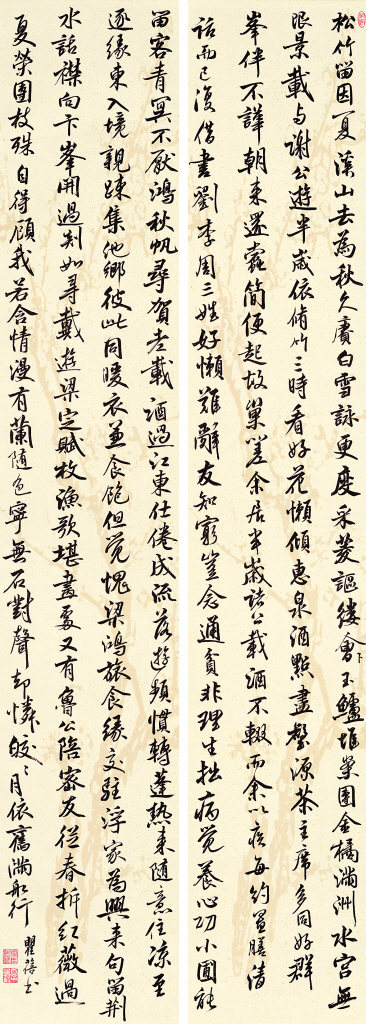 松竹留因夏溪山去為秋久賡白雪詠更度采菱謳縷會卜玉鱸堆案團金橘滿洲水宮無
限景載與謝公遊半歲依脩竹三時看好花懶傾惠泉酒點盡壑源茶主席多同好群
峯伴不譁朝來還蠹簡便起故巢嗟余居半歲諸公載酒不輟而余以疾每約置膳清
話而已復借書劉李周三姓好懶難辭友知窮豈念通貧非理生拙病覺養心功小圃能
留客青冥不厭鴻秋帆尋賀老載酒過江東仕倦成流落遊頻慣轉蓬熱來隨意住涼至
逐緣東入境親疎集他鄉彼此同暖衣兼食飽但覺愧梁鴻旅食緣交駐浮家為興來句留荊
水話襟向卞峯開過剡如尋戴遊梁定賦枚漁歌堪畫處又有魯公陪密友從春拆紅薇過
夏榮團枝殊自得顧我若含情漫有蘭隨色寧無石對聲却憐皎皎月依舊滿船行
瞿書